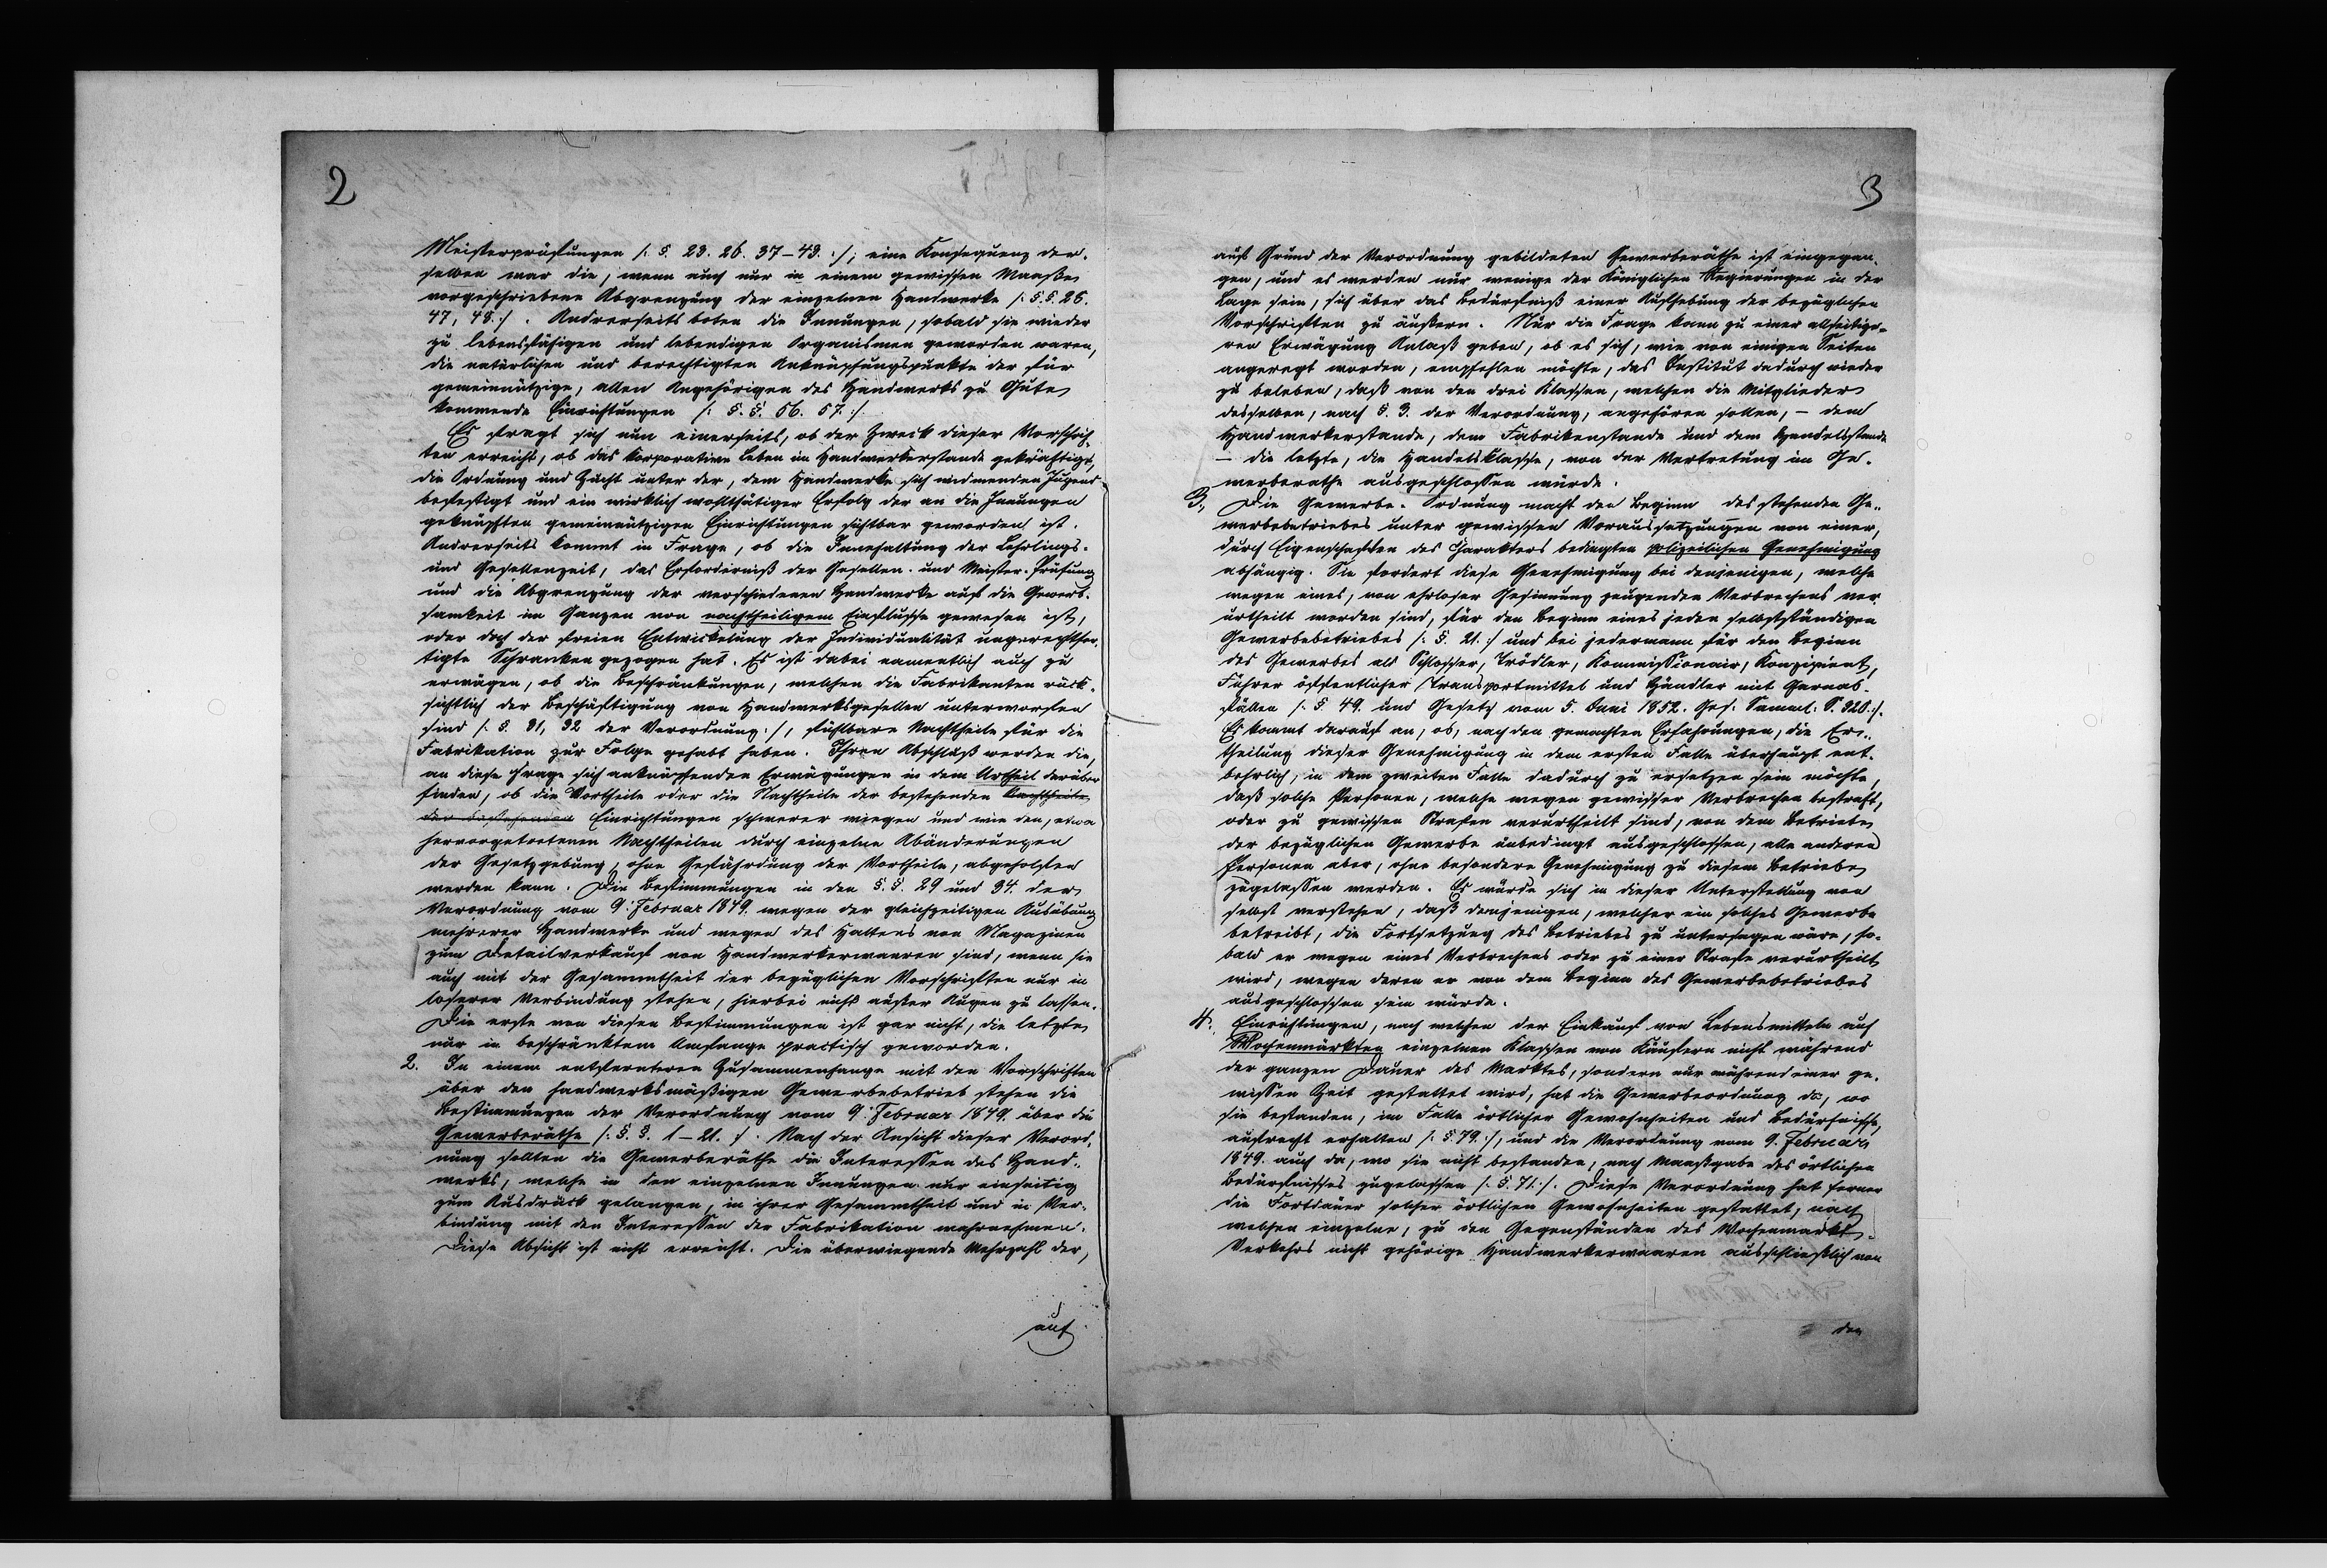 2
Meisterprüfungen /: §. 23. 26. 37–43. :/; eine Konsequenz der-
selben war die, wenn auch nur in einem gewissen Maaße
vorgeschriebene Abgrenzung der einzelnen Handwerke /: §.§. 25.
47, 48. :/. Andrerseits boten die Innungen, sobald sie wieder
zu lebensfähigen und lebendigen Organismen geworden waren,
die natürlichen und berechtigten Anknüpfungspunkte der für
gemeinnützige, allen Angehörigen des Handwerks zu Gute
kommende Einrichtungen /: §.§. 56. 57. :/
Es fragt sich nun einerseits, ob der Zweck dieser Vorschrif-
ten erreicht, ob das korporative Leben im Handwerkerstande gekräftigt,
die Ordnung und Zucht unter der, dem Handwerke sich widmenden Jugend
befestigt und ein wirklich wohlthätiger Erfolg der an die Innungen
geknüpften gemeinnützigen Einrichtungen sichtbar geworden ist.
Andrerseits kommt in Frage, ob die Innehaltung der Lehrlings-
und Gesellenzeit, das Erforderniß der Gesellen- und Meister-Prüfung
und die Abgrenzung der verschiedenen Handwerke auf die Gewerb-
samkeit im Ganzen von nachtheiligem Einflusse gewesen ist,
oder doch der freien Entwickelung der Individualität ungerechtfer-
tigte Schranken gezogen hat. Es ist dabei namentlich auch zu
erwägen, ob die Beschränkungen, welchen die Fabrikanten rück-
sichtlich der Beschäftigung von Handwerksgesellen unterworfen
sind /: §. 31, 32 der Verordnung :/, fühlbare Nachtheile für die
Fabrikation zur Folge gehabt haben. Ihren Abschluß werden die,
an diese Frage sich anknüpfenden Erwägungen in dem Urtheil darüber
finden, ob die Vortheile oder die Nachtheile der bestehenden Nachtheile
der bestehenden Einrichtungen schwerer wiegen und wie den, etwa
hervorgetretenen Nachtheilen durch einzelne Abänderungen
der Gesetzgebung, ohne Gefährdung der Vortheile, abgeholfen
werden kann. Die Bestimmungen in den §.§. 29 und 34. der
Verordnung vom 9. Februar 1849. wegen der gleichzeitigen Ausübung
mehrerer Handwerke und wegen des Haltens von Magazinen
zum Detailverkauf von Handwerkerwaaren sind, wenn sie
auch mit der Gesammtheit der bezüglichen Vorschriften nur in
loserer Verbindung stehen, hierbei nicht außer Augen zu lassen.
Die erste von diesen Bestimmungen ist gar nicht, die letzte
nur in beschränktem Umfange practisch geworden.
2. In einem entfernteren Zusammenhange mit den Vorschriften
über den handwerksmäßigen Gewerbebetrieb stehen die
Bestimmungen der Verordnung vom 9. Februar 1849. über die
Gewerberäthe /: §.§. 1–21. :/. Nach der Ansicht dieser Verord-
nung sollten die Gewerberäthe die Interessen des Hand-
werks, welche in den einzelnen Innungen nur einseitig
zum Ausdruck gelangen, in ihrer Gesammtheit und in Ver-
bindung mit den Interessen der Fabrikation wahrnehmen.
Diese Absicht ist nicht erreicht. Die überwiegende Mehrzahl der,
auf
3
auf Grund der Verordnung gebildeten Gewerberäthe ist eingegan-
gen, und es werden nur wenige der Königlichen Regierungen in der
Lage sein, sich über das Bedürfniß einer Aufhebung der bezüglichen
Vorschriften zu äußern. Nur die Frage kann zu einer allseitige-
ren Erwägung Anlaß geben, ob es sich, wie von einigen Seiten
angeregt worden, empfehlen möchte, das Institut dadurch wieder
zu beleben, daß von den drei Klassen, welchen die Mitglieder
desselben, nach §. 3. der Verordnung, angehören sollen, – dem
Handwerkerstande, dem Fabrikenstande und dem Handelsstande
– die letzte, die Handelsklasse, von der Vertretung im Ge-
werberathe ausgeschlossen würde.
3., Die Gewerbe-Ordnung macht den Beginn des stehenden Ge-
werbebetriebes unter gewissen Voraussetzungen von einer,
durch Eigenschaften des Charakters bedingten polizeilichen Genehmigung
abhängig. Sie fordert diese Genehmigung bei denjenigen, welche
wegen eines, von ehrloser Gesinnung zeugenden Verbrechens ver-
urtheilt worden sind, für den Beginn eines jeden selbstständigen
Gewerbebetriebes /: §. 21. :/ und bei jedermann für den Beginn
des Gewerbes als Schlosser, Trödler, Kommissionair, Konzipient,
Führer öffentlicher Transportmittel und Händler mit Garnab-
fällen /: §. 49. und Gesetz vom 5. Juni 1852. Ges. Samml. S. 320. :/.
Es kommt darauf an, ob, nach den gemachten Erfahrungen, die Er-
theilung dieser Genehmigung in dem ersten Falle überhaupt ent-
behrlich, in dem zweiten Falle dadurch zu ersetzen sein möchte,
daß solche Personen, welche wegen gewisser Verbrechen bestraft,
oder zu gewissen Strafen verurtheilt sind, von dem Betriebe
der bezüglichen Gewerbe unbedingt ausgeschlossen, alle anderen
Personen aber, ohne besondere Genehmigung zu diesem Betriebe
zugelassen werden. Es würde sich in dieser Unterstellung von
selbst verstehen, daß demjenigen, welcher ein solches Gewerbe
betreibt, die Fortsetzung des Betriebes zu untersagen wäre, so-
bald er wegen eines Verbrechens oder zu einer Strafe verurtheilt
wird, wegen deren er von dem Beginn des Gewerbebetriebes
ausgeschlossen sein würde.
4., Einrichtungen, nach welchen der Einkauf von Lebensmitteln auf
Wochenmärkten einzelnen Klassen von Käufern nicht während
der ganzen Dauer des Marktes, sondern nur während einer ge-
wissen Zeit gestattet wird, hat die Gewerbeordnung da, wo
sie bestanden, im Falle örtlicher Gewohnheiten und Bedürfnisse,
aufrecht erhalten /: §. 79. :/, und die Verordnung vom 9. Februar
1849. auch da, wo sie nicht bestanden, nach Maaßgabe des örtlichen
Bedürfnisses zugelassen /: §. 71. :/. Diese Verordnung hat ferner
die Fortdauer solcher örtlichen Gewohnheiten gestattet, nach
welchen einzelne, zu den Gegenständen des Wochenmarkt-
Verkehrs nicht gehörige Handwerkerwaaren ausschließlich von
den